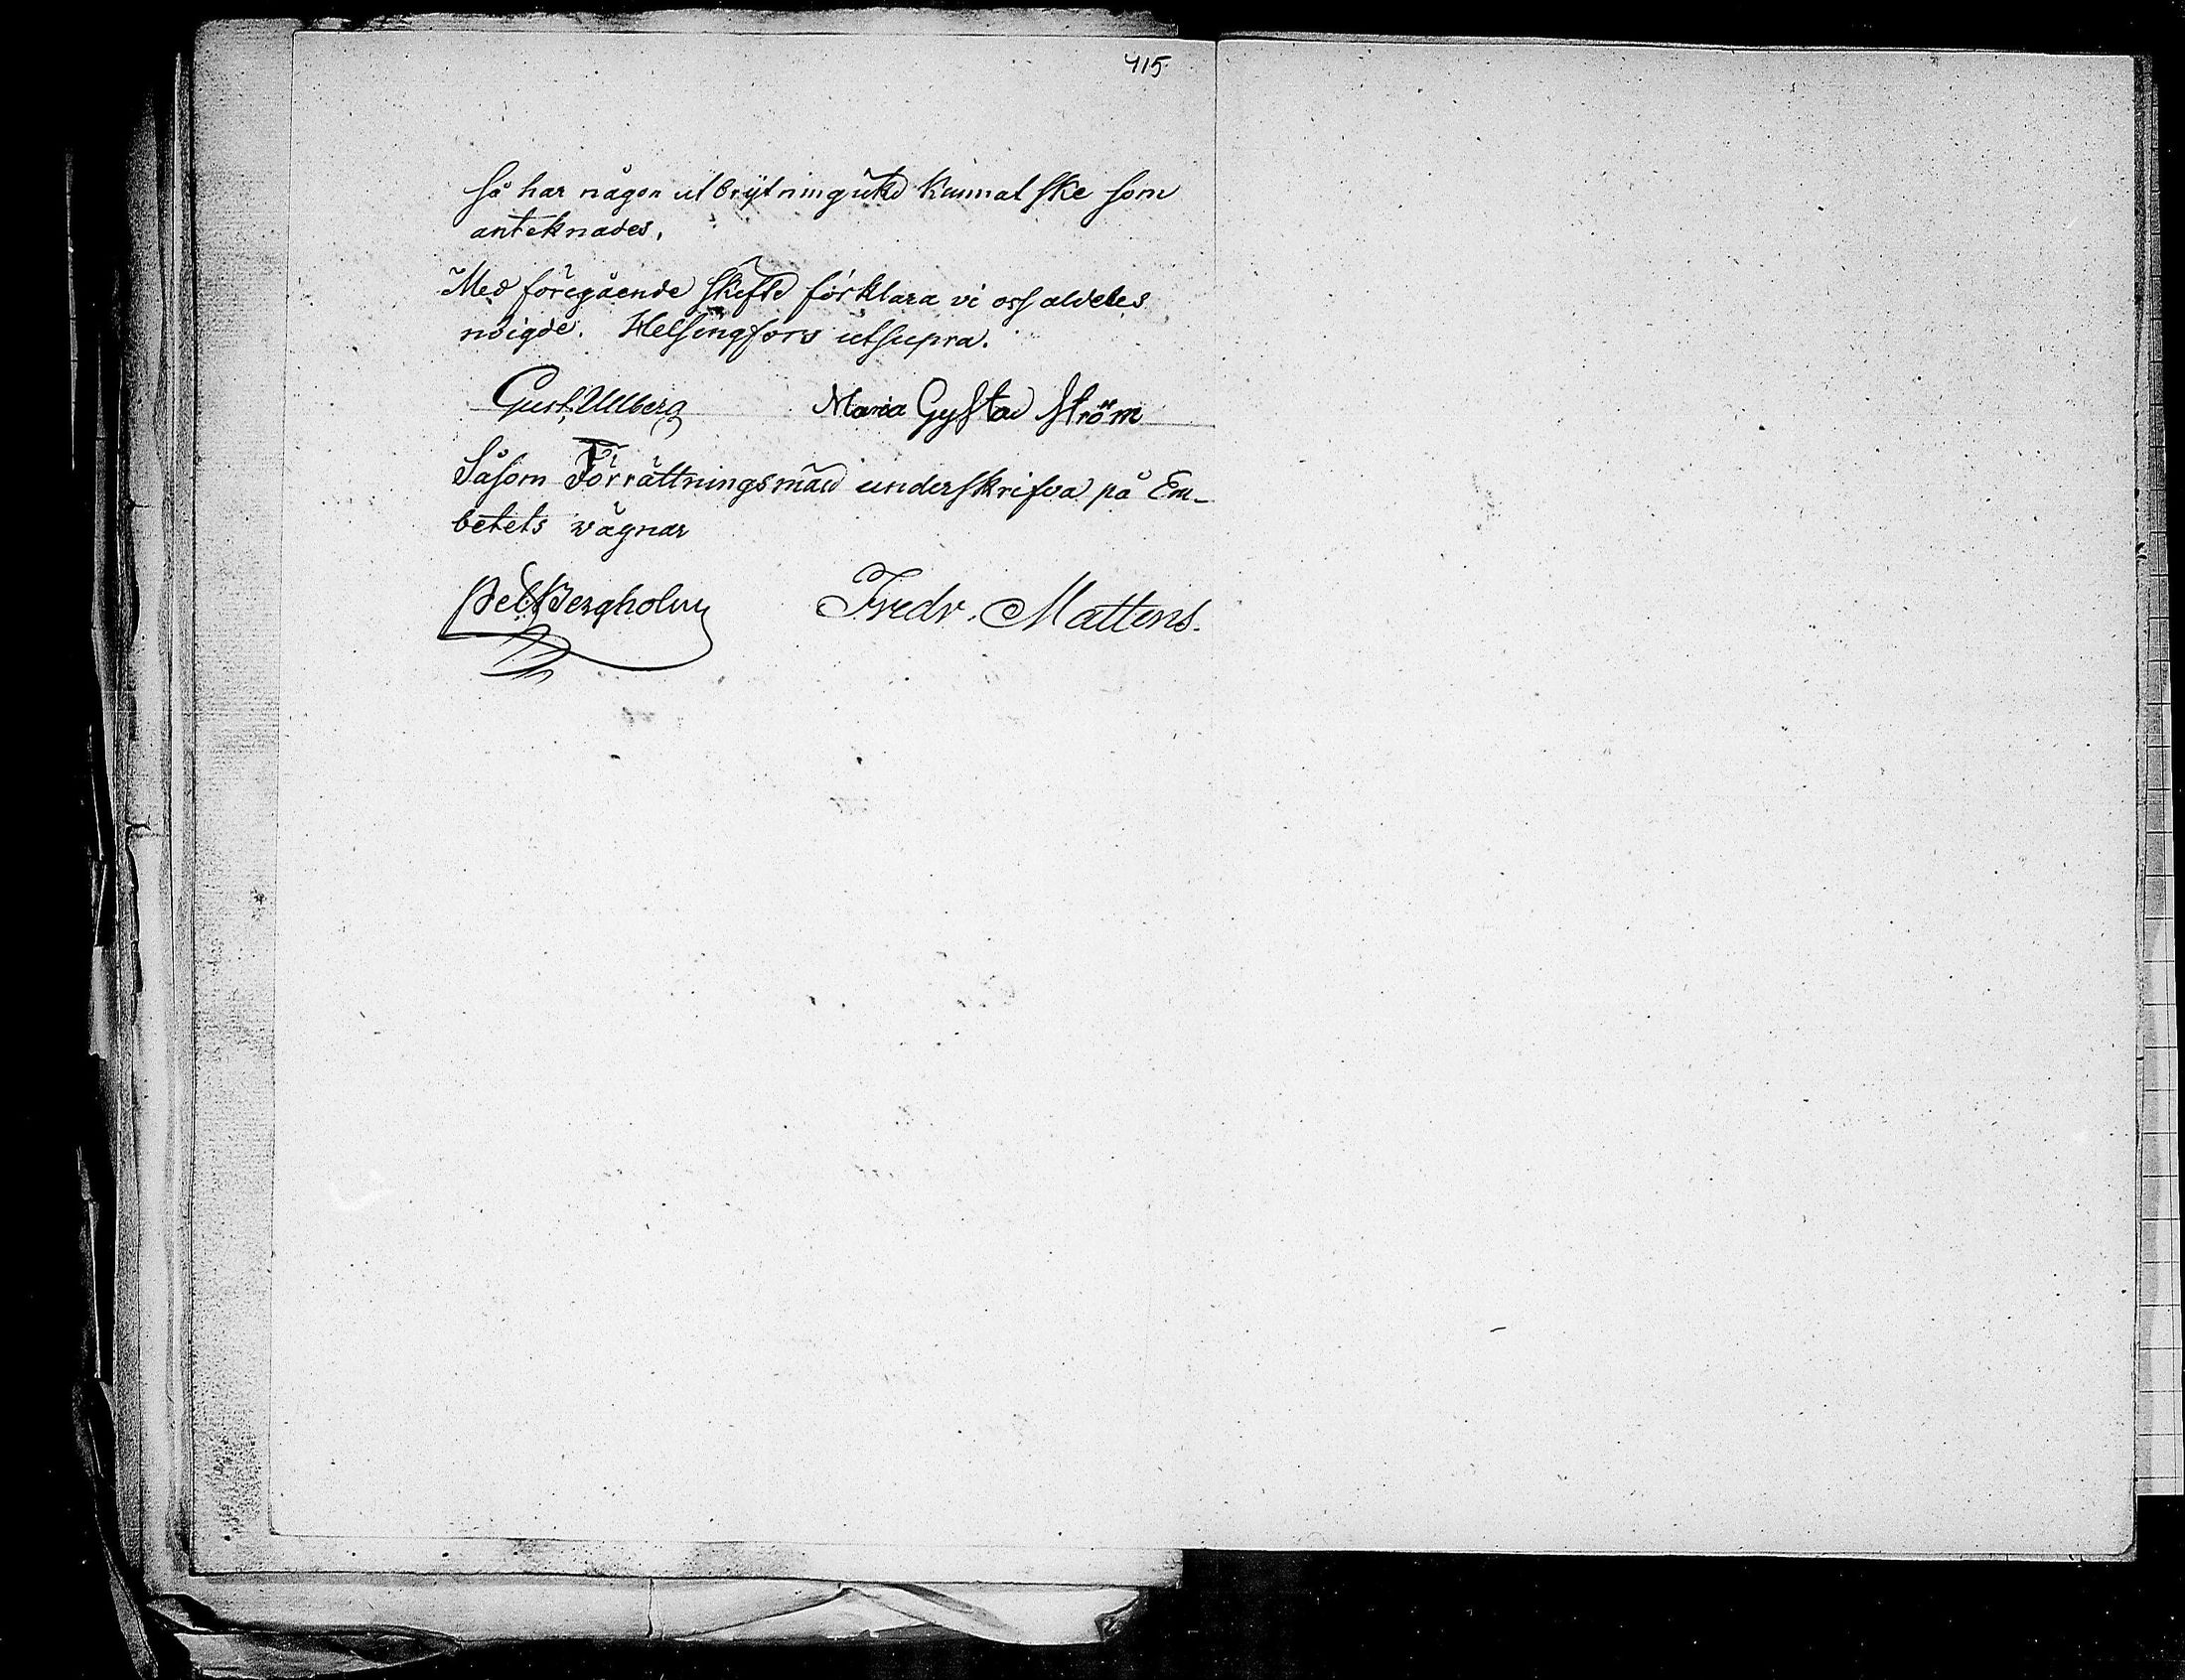 415.
så har någon utbrytning icke kunnat ske som
anteknades.
Med föregående skifte förklara vi oss aldeles
nöigde. Helsingfors utsupra.
Gust. Ullberg Maria Gustav Ström
Såsom Förrättningsmän underskrifva på Em-
betets wägnar
Bergholm Fredr. Mattens.